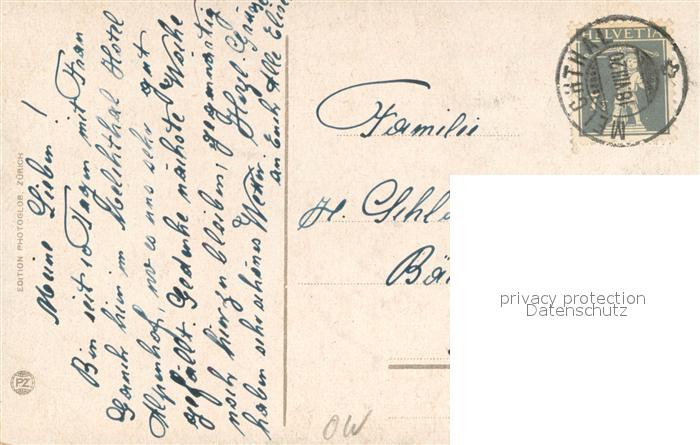 Meine Lieben!
Bin seit 10 Tagen mit Frau
hier im Melchthal Hotel
Alpenhof, wo es uns sehr gut
gefällt. Gedenke nächste Woche
noch hier zu bleiben, gegenwärtig
haben sehr schönes Wetter. Herzl. Grüsse
an Euch Alle Elise
EDITION PHOTOGLOB, ZÜRICH
PZ
Familie
H.
HELVETIA
MELCHTHAL
VIII.18
privacy protection
Datenschutz
OW